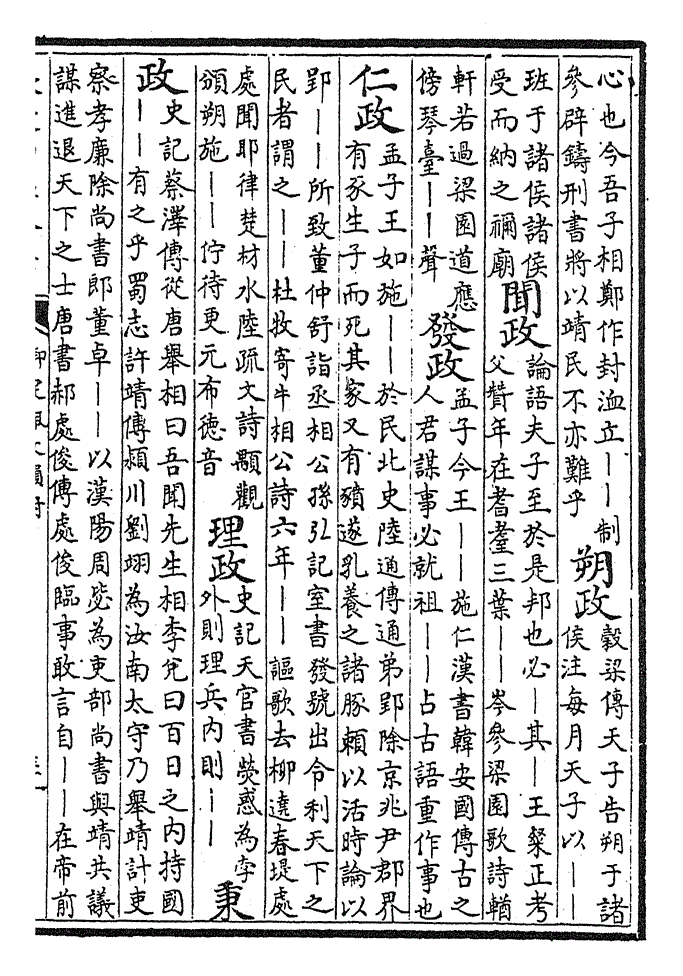 心也今吾子相鄭作封洫立丨丨制
參辟鑄刑書將以靖民不亦難乎
朔政
穀梁傳天子告朔于諸
侯注每月天子以丨丨
班于諸侯諸侯
受而納之禰廟
聞政
論語夫子至於是邦也必丨其丨王粲正考
父贊年在耆耋三葉丨丨岑參梁園歌詩輶
軒若過梁園道應
傍琴臺丨丨聲
發政
孟子今王丨丨施仁漢書韓安國傳古之
人君謀事必就祖丨丨占古語重作事也
仁政
孟子王如施丨丨於民北史陸通傳通弟郢除京兆尹郡界
有豕生子而死其家又有豶遂乳養之諸豚賴以活時論以
郢丨丨所致董仲舒詣丞相公孫弘記室書發號出令利天下之
民者謂之丨丨杜牧寄牛相公詩六年丨丨謳歌去柳遶春堤處
處聞耶律楚材水陸疏文詩顒觀
頒朔施丨丨佇待更元布德音
理政
史記天官書熒惑為孛
外則理兵內則丨丨
秉
政
史記蔡澤傳從唐舉相曰吾聞先生相李兌曰百日之內持國
丨丨有之乎蜀志許靖傳潁川劉翊為汝南太守乃舉靖計吏
察孝廉除尚書郎董卓丨丨以漢陽周毖為吏部尚書與靖共議
謀進退天下之士唐書郝處俊傳處俊臨事敢言自丨丨在帝前